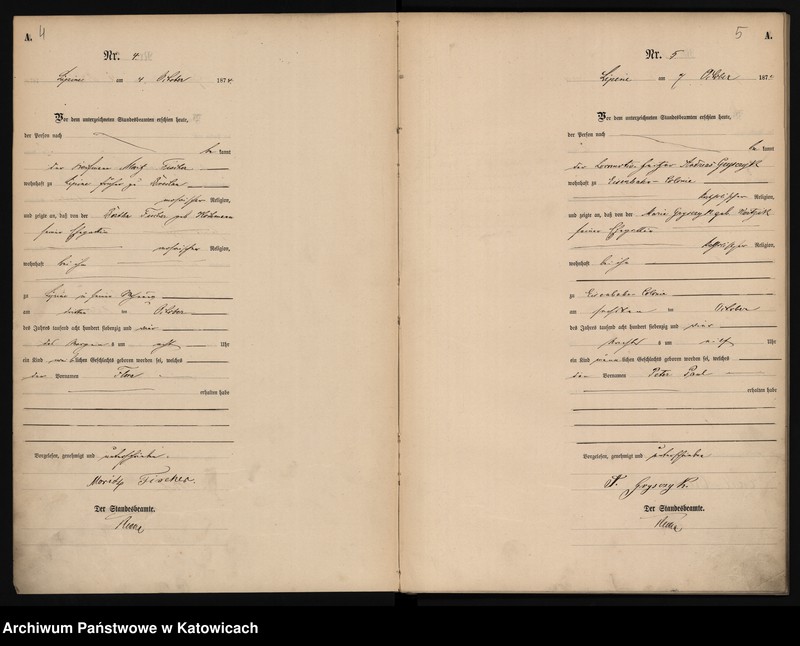 A. 4
Nr. 4
Lipine am 4 October 1874
Vor dem unterzeichneten Standesbeamten erschien heute,
der Person nach
be kannt
der Moritz Fischer
wohnhaft zu Lipine früher zu
mosaischer Religion,
und zeigte an, daß von der Fischer geb.
seiner Ehegattin
mosaischer Religion,
wohnhaft bei ihm
zu Lipine in seiner Wohnung
am dritten October
des Jahres tausend acht hundert siebenzig und vier
des Morgens um acht Uhr
ein Kind weiblichen Geschlechts geboren worden sei, welches
den Vornamen Flora
erhalten habe
Vorgelesen, genehmigt und unterschrieben.
Moritz Fischer.
Der Standesbeamte.
5 A.
Nr. 5
Lipine am 7 October 1874
Vor dem unterzeichneten Standesbeamten erschien heute,
der Person nach
be kannt
der
wohnhaft zu Eisenbahn-Colonie
katholischer Religion,
und zeigte an, daß von der Marie geb.
seiner Ehegattin
katholischer Religion,
wohnhaft bei ihm
zu Eisenbahn-Colonie
am October
des Jahres tausend acht hundert siebenzig und vier
Nachts um Uhr
ein Kind männlichen Geschlechts geboren worden sei, welches
den Vornamen Peter Paul
erhalten habe
Vorgelesen, genehmigt und unterschrieben
Der Standesbeamte.
Archiwum Państwowe w Katowicach